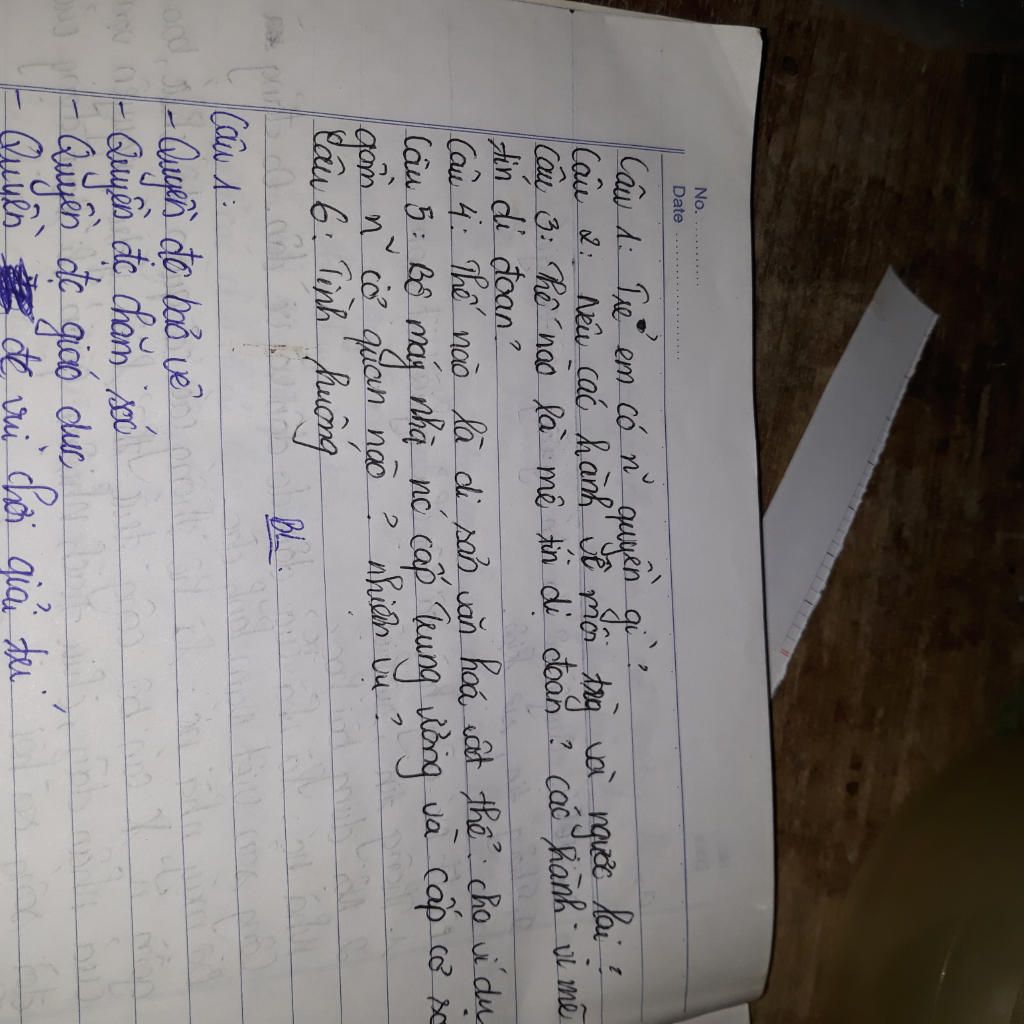 No. ............
Date ....................
Câu 1: Trẻ em có n~ quyền gì?
Câu 2: Nêu các hành vi về môi trg và ngược lại?
Câu 3: Thế nào là mê tín dị đoan? các hành vi mê
tín dị đoan?
Câu 4: Thế nào là di sản văn hoá vật thể. cho ví dụ
Câu 5: Bộ máy nhà nc cấp Trung ương và cấp cơ sở
gồm n~ cơ quan nào? nhiệm vụ?
Câu 6: Tình huống
BL
Câu 1:
- Quyền đc bảo vệ
- Quyền đc chăm sóc
- Quyền đc giáo dục
- Quyền đc vui chơi giải trí